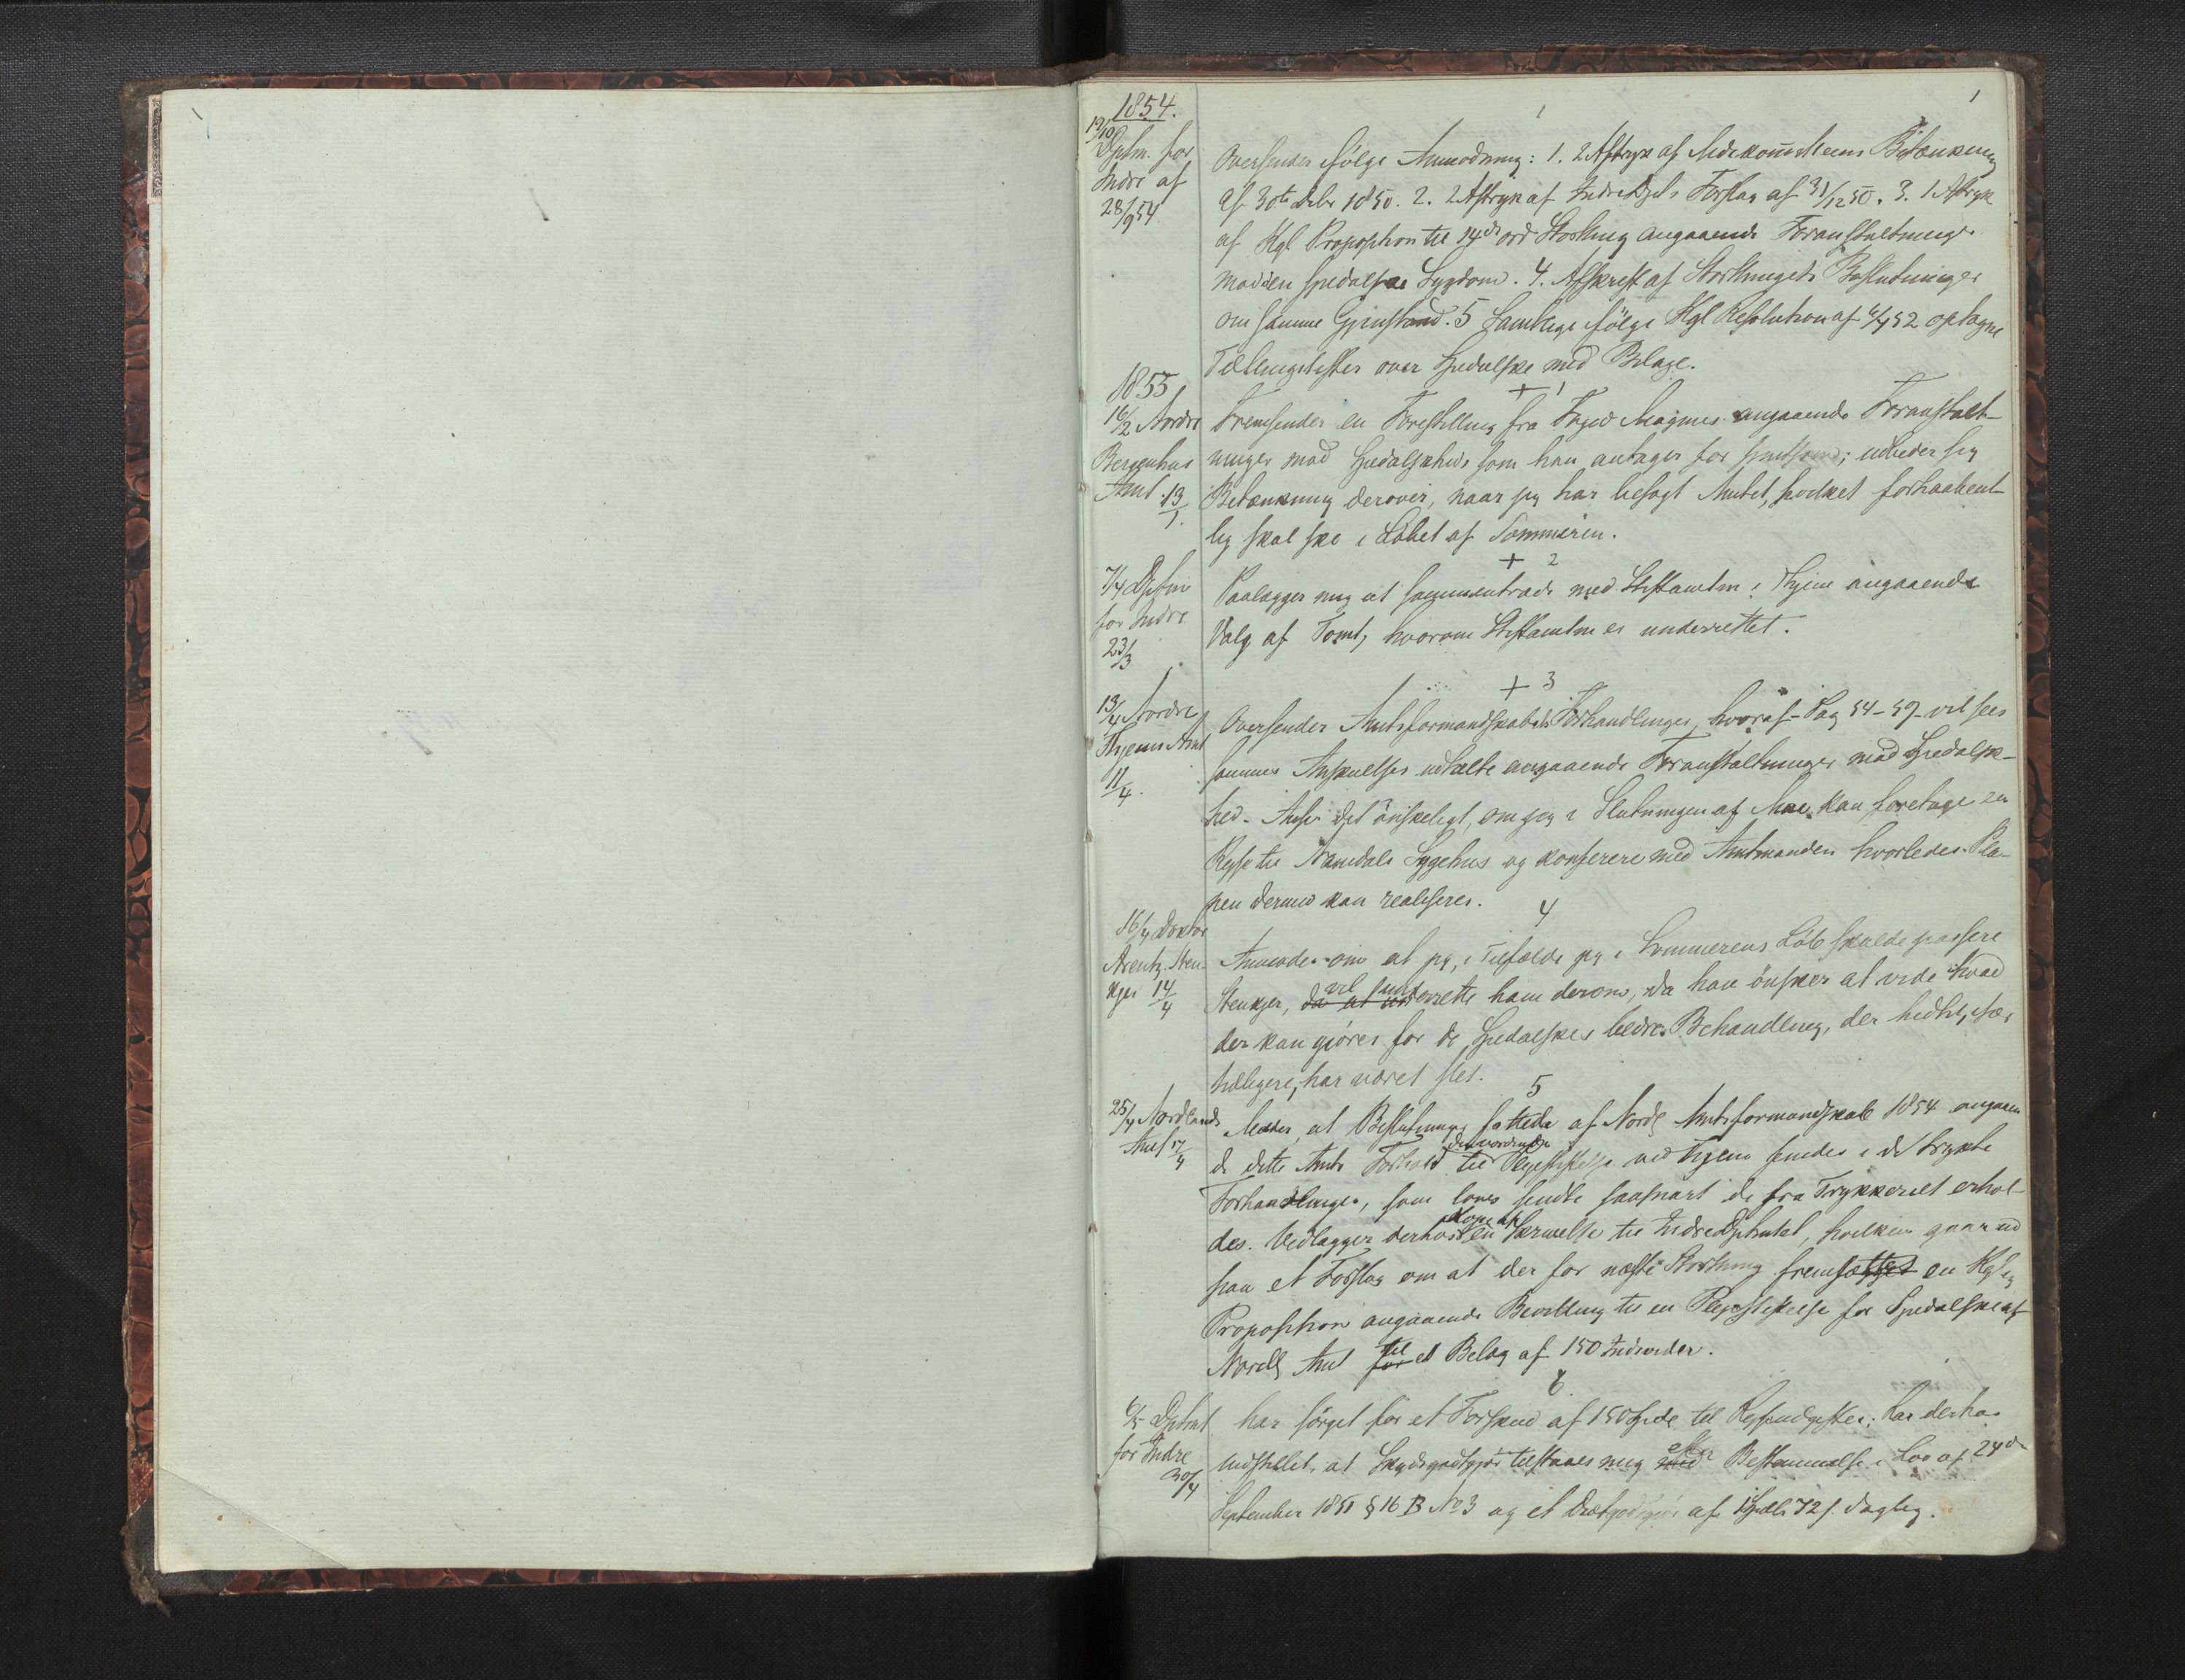 1
1854.
1
19/10 Dptm. for
Indre af
28/9 54
Oversender ifölge Anmodning: 1. 2 Aftryk af Medikom̅issteens Betænkning
af 30te Debr 1850. 2. 2 Aftryk af IndreDpts Forslag af 31/12 50. 3. 1 Aftryk
af Kgl Proposition til 14de ord Storthing angaaende Foranstaltninger
mod den spedalske Sygdom. 4. Afskrift af Storthingets Beslutninger
om samme Gjenstand. 5 Samtlige ifölge Kgl Resolution af 6/4 52 optagne
Tællingslister over Spedalske med Bilage.
1855
+ 1
16/2 Nordre
Bergenhus
Amt 13/1.
Fremsender en Forestilling fra Foged Magnus angaaende Foranstalt-
ninger mod Spedalskhed som han antager for smitsom; udbeder sig
Betænkning derover, naar jeg har besøgt Amtet, hvilket forhaabent-
lig skal ske i Løbet af Sommeren.
+ 2
7/4 Dptm
for Indre
23/3
Paalægger mig at sammentræde med Stiftamtm i Thjem angaaende
Valg af Tomt, hvorom Stiftamtm er underrettet.
+ 3
13/4 Nordre
Thjems Amt
11/4.
Oversender Amtsformandskabets Forhandlinger, hvoraf Pag 54-59 vil sees
sammes Anskuelser udtalte angaaende Foranstaltninger mod Spedalsk-
hed. Anser det önskeligt, om jeg i Slutningen af Mai kan foretage en
Reise til Namdals Sygehus og konferere med Amtmanden hvorledes Pla-
nen dermed kan realiseres.
4
16/4 Doktor
Arentz. Sten-
kjer 14/4
Anmoder om at jeg, i Tilfælde jeg i Sommerens Löb skulde passere
Stenkjer, da at vil underrette ham derom, da han önsker at vide hvad
der kan gjöres for de Spedalskes bedre Behandling, der hidtil, især
tidligere, har været slet.
5
25/4 Nordlands
Amt 17/4
Melder, at Beslutninger fattede af Nordl Amtsformandskab 1854 angaaen
de dette Amts Forhold til den vordende Plejestiftelse ved Thjem findes i de trykte
Forhandlinger, som loves sendte saasnart de fra Trykkeriet erhol-
des. Vedlægger derhos Kopi af en Skrivelse til IndreDptmtet, hvilken gaar ud
paa et Forslag om at der for næste Storthing fremsættes en Kgl
Proposition angaaende Bevilling til en Plejestiftelse for Spedalske af
Nordl Amt for til et Belæg af 150 Individer.
6
6/5 Dptmt
for Indre
30/4
har sörget for et Forskud af 150 Spd til Rejseudgifter; har derhos
indstillet, at Skydsgodtgjör tilstaaes mig med efter Bestemmelse i Lov af 24de
September 1851 § 16 B No 3 og et Diætgodtgjör af 1 Spdlr 72 s. daglig.